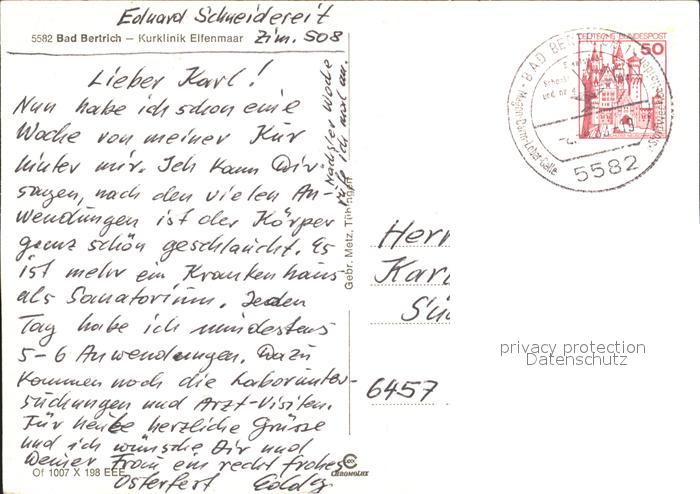 Eduard Schneidereit
5582 Bad Bertrich – Kurklinik Elfenmaar
Zim. 508
Lieber Karl!
Nun habe ich schon eine
Woche von meiner Kur
hinter mir. Ich kann Dir
sagen, nach den vielen An-
wendungen ist der Körper
ganz schön geschlaucht. Es
ist mehr ein Krankenhaus
als Sanatorium. Jeden
Tag habe ich mindestens
5-6 Anwendungen. Dazu
kommen noch die Laborunter-
suchungen und Arzt-Visiten.
Für heute herzliche Grüsse
und ich wünsche Dir und
Deiner Frau ein recht frohes
Osterfest
Nächster Woche
rufe ich mal an.
Of 1007 X 198 EEE
CHROMOLUX
Gebr. Metz, Tübingen
DEUTSCHE BUNDESPOST
50
BAD BE
Magen-Darm-Leber-Galle
5582
Herr
Kar
Sü
6457
privacy protection
Datenschutz